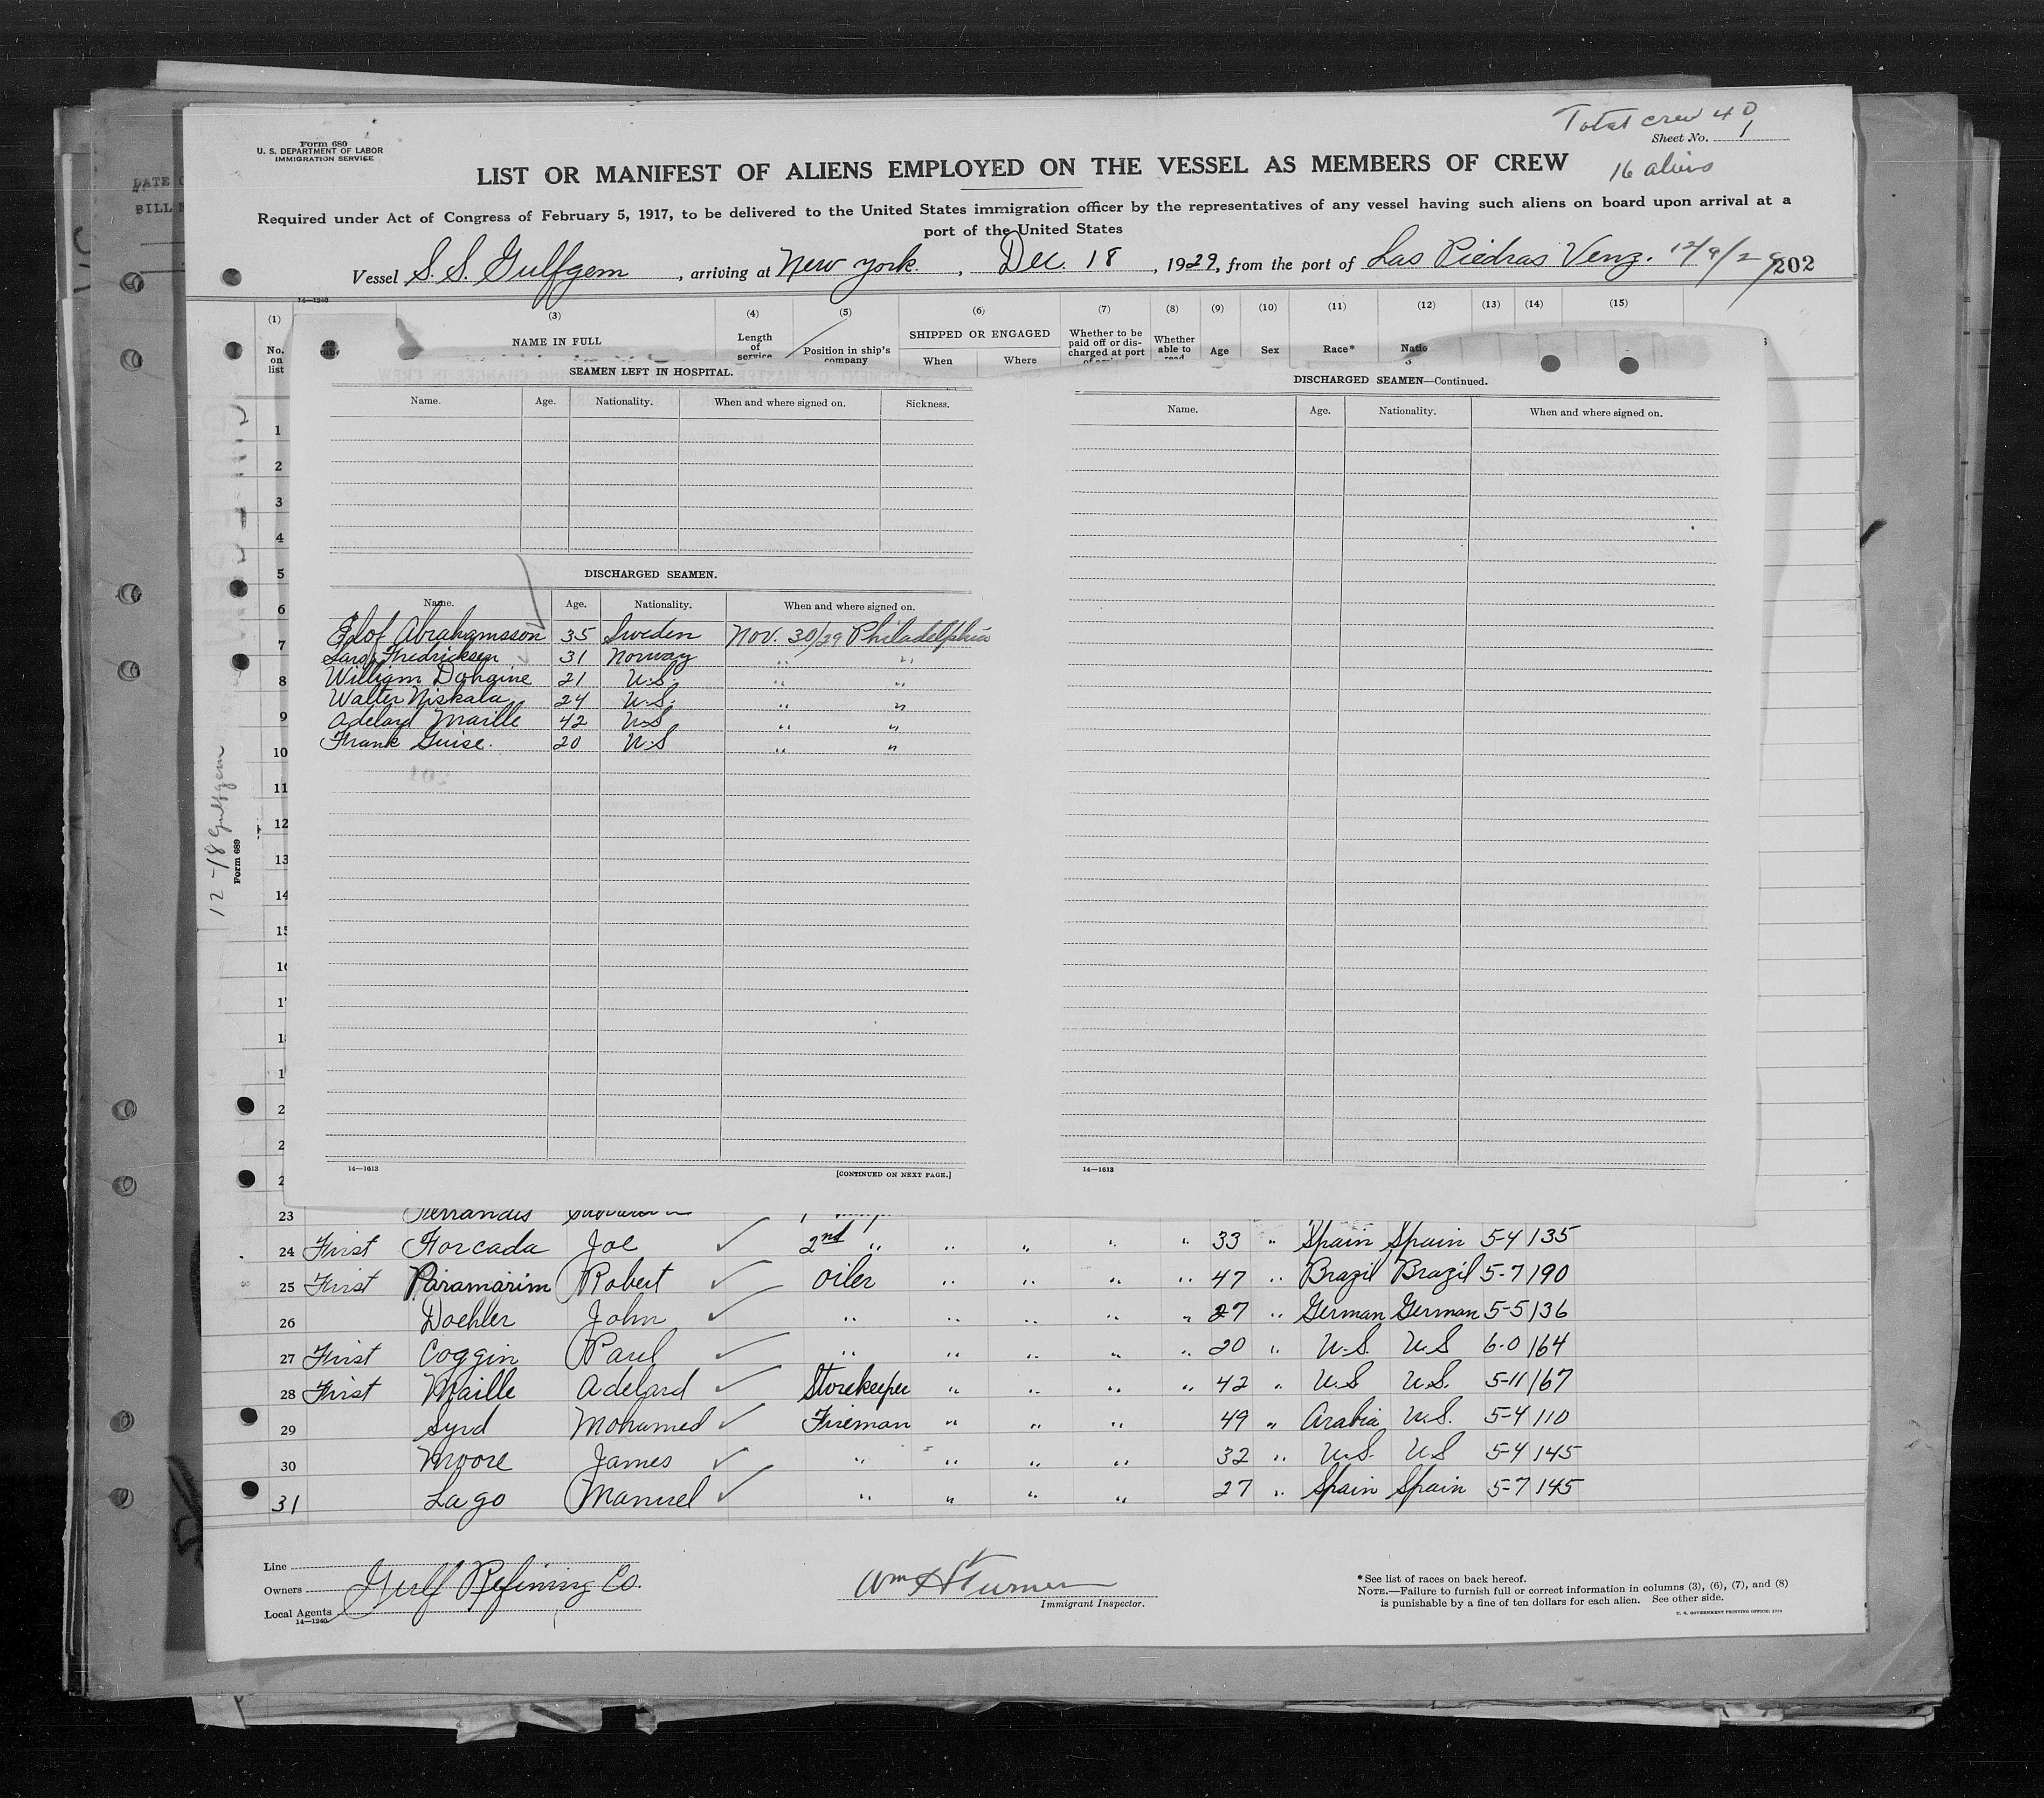 Total crew 40
Form 680
U. S. DEPARTMENT OF LABOR
IMMIGRATION SERVICE
Sheet No. 1
LIST OR MANIFEST OF ALIENS EMPLOYED ON THE VESSEL AS MEMBERS OF CREW
16 aliens
Required under Act of Congress of February 5, 1917, to be delivered to the United States immigration officer by the representatives of any vessel having such aliens on board upon arrival at a
port of the United States
Vessel S. S. Gulfgem, arriving at New York, Dec. 18, 1929, from the port of Las Piedras Venz. 12/9/29
202
14—1240
(1) (3) (4) (5) (6) (7) (8) (9) (10) (11) (12) (13) (14) (15)
No. on list NAME IN FULL Length of service Position in ship's company SHIPPED OR ENGAGED When Where Whether to be paid off or discharged at port Whether able to read Age Sex Race* Natio
SEAMEN LEFT IN HOSPITAL.
Name. Age. Nationality. When and where signed on. Sickness.
DISCHARGED SEAMEN.
Name. Age. Nationality. When and where signed on.
Elof Abrahamsson 35 Sweden Nov. 30/29 Philadelphia
Fredricksen 31 Norway " "
William Donaine 21 U.S. " "
Walter Niskala 24 U.S. " "
Adelard Maille 42 U.S " "
Frank Guise. 20 U.S " "
14—1613 [CONTINUED ON NEXT PAGE.]
DISCHARGED SEAMEN—Continued.
Name. Age. Nationality. When and where signed on.
14—1613
1
2
3
4
5
6
7
8
9
10
11
12
13
14
12-18 Gulfgem
Form 689
23
24 First Forcada Joe ✓ 2nd " " " " " 33 " Spain Spain 5-4 135
25 First Paramarim Robert ✓ Oiler " " " " 47 " Brazil Brazil 5-7 190
26 Doehler John ✓ " " " " " 27 " German German 5-5 136
27 First Coggin Paul ✓ " " " " " 20 " U.S. U.S 6-0 164
28 First Maille Adelard ✓ Storekeeper " " " " 42 " U.S U.S. 5-11 167
29 Syrd Mohamed ✓ Fireman " " " 49 " Arabia U.S. 5-4 110
30 Moore James ✓ " " " " 32 " U.S. U.S 5-4 145
31 Lago Manuel ✓ " " " " 27 " Spain Spain 5-7 145
Line
Owners Gulf Refining Co.
Local Agents
14—1240
Wm H Turner
Immigrant Inspector.
*See list of races on back hereof.
NOTE.—Failure to furnish full or correct information in columns (3), (6), (7), and (8)
is punishable by a fine of ten dollars for each alien. See other side.